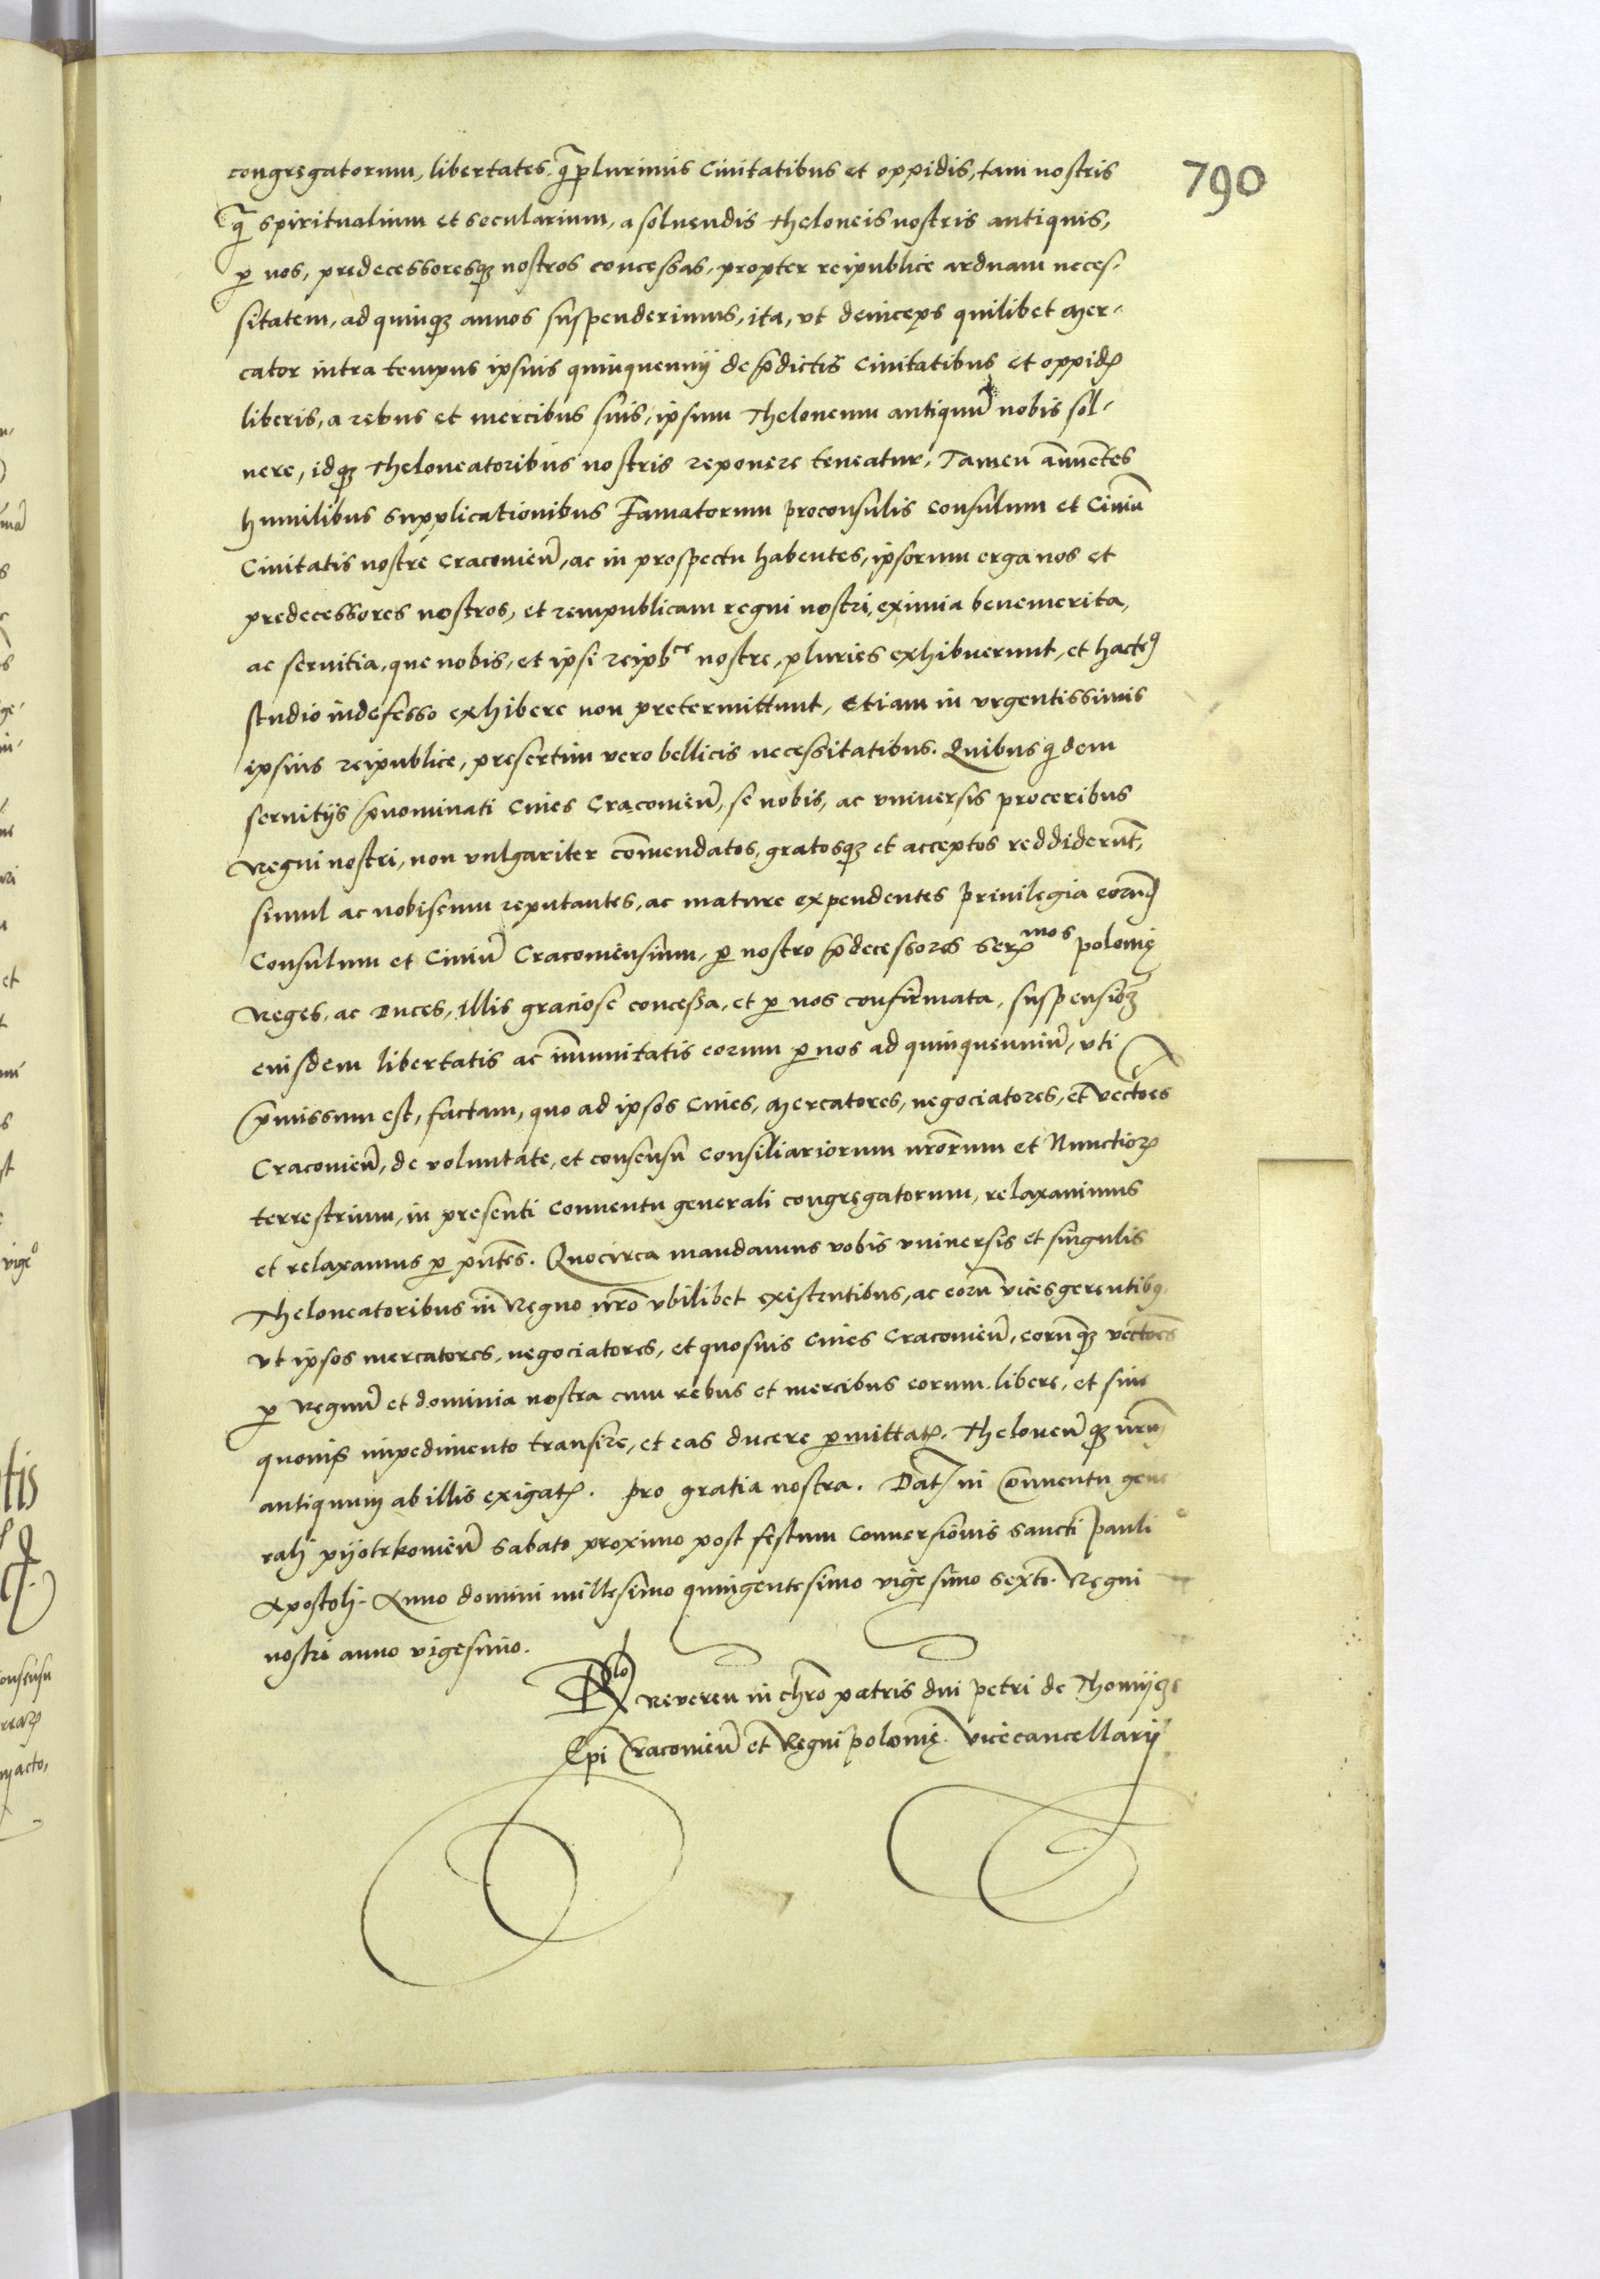 790
congregatorum, libertates, q̃plurimis Ciuitatibus et oppidis, tam nostris
q̃ spiritualium et secularium, a soluendis theloneis nostris antiquis,
p nos, predecessoresqȝ nostros concessas, propter reipublice arduam neces-
sitatem, ad quinqȝ annos suspenderimus, ita, vt deinceps quilibet Mer-
cator intra tempus ipsius quinquennij de p̃dictis Ciuitatibus et oppidꝭ
liberis, a rebus et mercibus suis, ipsum Theloneum antiquũ nobis sol-
uere, idqȝ Theloneatoribus nostris reponere teneatur, Tamen ãnuentes
humilibus supplicationibus Famatorum proconsulis Consulum et Ciuiũ
Ciuitatis nostre Cracouieñ, ac in prospectu habentes, ipsorum erga nos et
predecessores nostros, et rempublicam regni nostri, eximia benemerita,
ac seruitia, que nobis, et ipsi reipbce nostre, pluries exhibuerunt, et hacteꝰ
studio indefesso exhibere non pretermittunt, Etiam in vrgentissimis
ipsius reipublice, presertim vero bellicis necessitatibus. Quibus qdem
seruitijs p̃nominati Ciues Cracouieñ, se nobis, ac vniuersis proceribus
Regni nostri, non vulgariter cõmendatos, gratosqȝ et acceptos reddiderũt,
simul ac nobiscum reputantes, ac mature expendentes Priuilegia eorũd
Consulum et Ciuiũ Cracouiensium, p nostro p̃decessores Serꝭmos polonię
Reges, ac Duces, illis graciose concessa, et p nos confirmata, suspensioȝ
eiusdem libertatis ac ĩmunitatis eorum p nos ad quinquenniũ, vti
p̃missum est, factam, quo ad ipsos Ciues, Mercatores, negociatores, et vectões
Cracouieñ, de voluntate, et consensu Consiliariorum nrõrum et Nunctioꝝ
terrestrium, in presenti Conuentu generali congregatorum, relaxauimus
et relaxamus p pñtes. Quocirca mandamus vobis vniuersis et singulis
Theloneatoribus in Regno nrõ vbilibet existentibus, ac eorũ vices gerentibꝰ,
vt ipsos mercatores, negociatores, et quosuis Ciues Cracouieñ, eorũqȝ vectões
p Regnũ et dominia nostra cum rebus et mercibus eorum libere, et sine
quouis impedimento transire, et eas ducere pmittatꝭ. Theloneũqȝ nrũ
antiquum ab illis exigatꝭ. Pro gratia nostra. Datꝭ in Conuentu gene
rali pijotrkouieñ Sabato proximo post festum Conuersionis Sancti Pauli
Apostoli. Anno domini millesimo quingentesimo vigesimo Sexto. Regni
nostri anno vigesimo.
Rlo Reueren in chrõ patris dni Petri de Thomijcze
Epi Cracouieñ et Regni Polonię Vicecancellarij